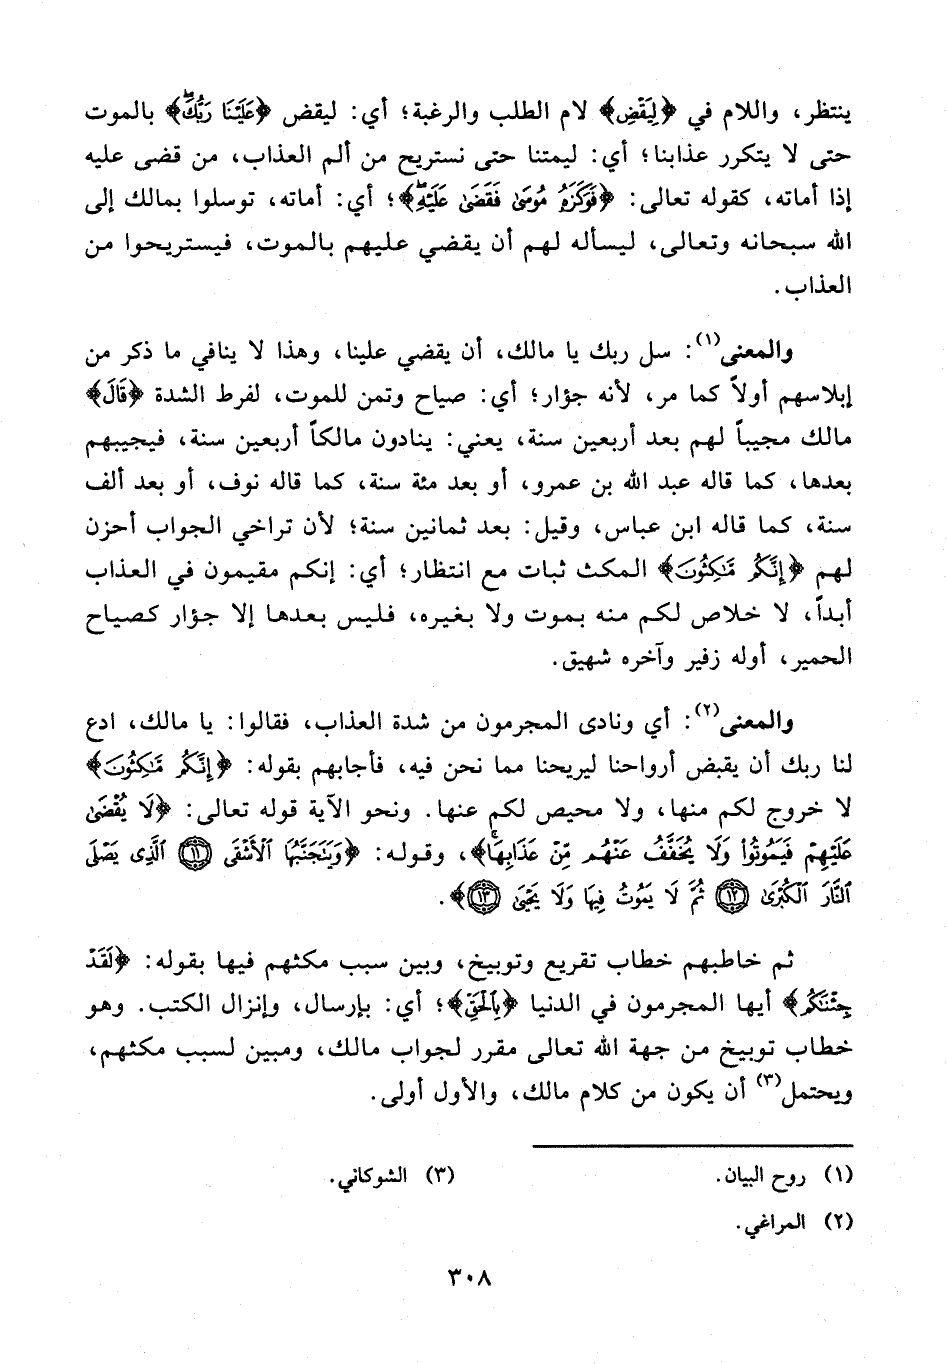 ينتظر، واللام في ﴿لِيَقْضِ﴾ لام الطلب والرغبة؛ أي: ليقض ﴿عَلَيْنَا رَبُّكَ﴾ بالموت
حتى لا يتكرر عذابنا؛ أي: ليمتنا حتى نستريح من ألم العذاب، من قضى عليه
إذا أماته، كقوله تعالى: ﴿فَوَكَزَهُ مُوسَىٰ فَقَضَىٰ عَلَيْهِ﴾؛ أي: أماته، توسلوا بمالك إلى
الله سبحانه وتعالى، ليسأله لهم أن يقضي عليهم بالموت، فيستريحوا من
العذاب.
والمعنى(١): سل ربك يا مالك، أن يقضي علينا، وهذا لا ينافي ما ذكر من
إبلاسهم أولاً كما مر، لأنه جؤار؛ أي: صياح وتمن للموت، لفرط الشدة ﴿قَالَ﴾
مالك مجيباً لهم بعد أربعين سنة، يعني: ينادون مالكاً أربعين سنة، فيجيبهم
بعدها، كما قاله عبد الله بن عمرو، أو بعد مئة سنة، كما قاله نوف، أو بعد ألف
سنة، كما قاله ابن عباس، وقيل: بعد ثمانين سنة؛ لأن تراخي الجواب أحزن
لهم ﴿إِنَّكُم مَّاكِثُونَ﴾ المكث ثبات مع انتظار؛ أي: إنكم مقيمون في العذاب
أبداً، لا خلاص لكم منه بموت ولا بغيره، فليس بعدها إلا جؤار كصياح
الحمير، أوله زفير وآخره شهيق.
والمعنى(٢): أي ونادى المجرمون من شدة العذاب، فقالوا: يا مالك، ادع
لنا ربك أن يقبض أرواحنا ليريحنا مما نحن فيه، فأجابهم بقوله: ﴿إِنَّكُم مَّاكِثُونَ﴾
لا خروج لكم منها، ولا محيص لكم عنها. ونحو الآية قوله تعالى: ﴿لَا يُقْضَىٰ
عَلَيْهِمْ فَيَمُوتُوا۟ وَلَا يُخَفَّفُ عَنْهُم مِّنْ عَذَابِهَا﴾، وقوله: ﴿وَيَتَجَنَّبُهَا ٱلْأَشْقَى ۝١١ ٱلَّذِى يَصْلَى
ٱلنَّارَ ٱلْكُبْرَىٰ ۝١٢ ثُمَّ لَا يَمُوتُ فِيهَا وَلَا يَحْيَىٰ ۝١٣﴾.
ثم خاطبهم خطاب تقريع وتوبيخ، وبين سبب مكثهم فيها بقوله: ﴿لَقَدْ
جِئْنَاكُم﴾ أيها المجرمون في الدنيا ﴿بِٱلْحَقِّ﴾؛ أي: بإرسال، وإنزال الكتب. وهو
خطاب توبيخ من جهة الله تعالى مقرر لجواب مالك، ومبين لسبب مكثهم،
ويحتمل(٣) أن يكون من كلام مالك، والأول أولى.
(١) روح البيان.
(٢) المراغي.
(٣) الشوكاني.
٣٠٨